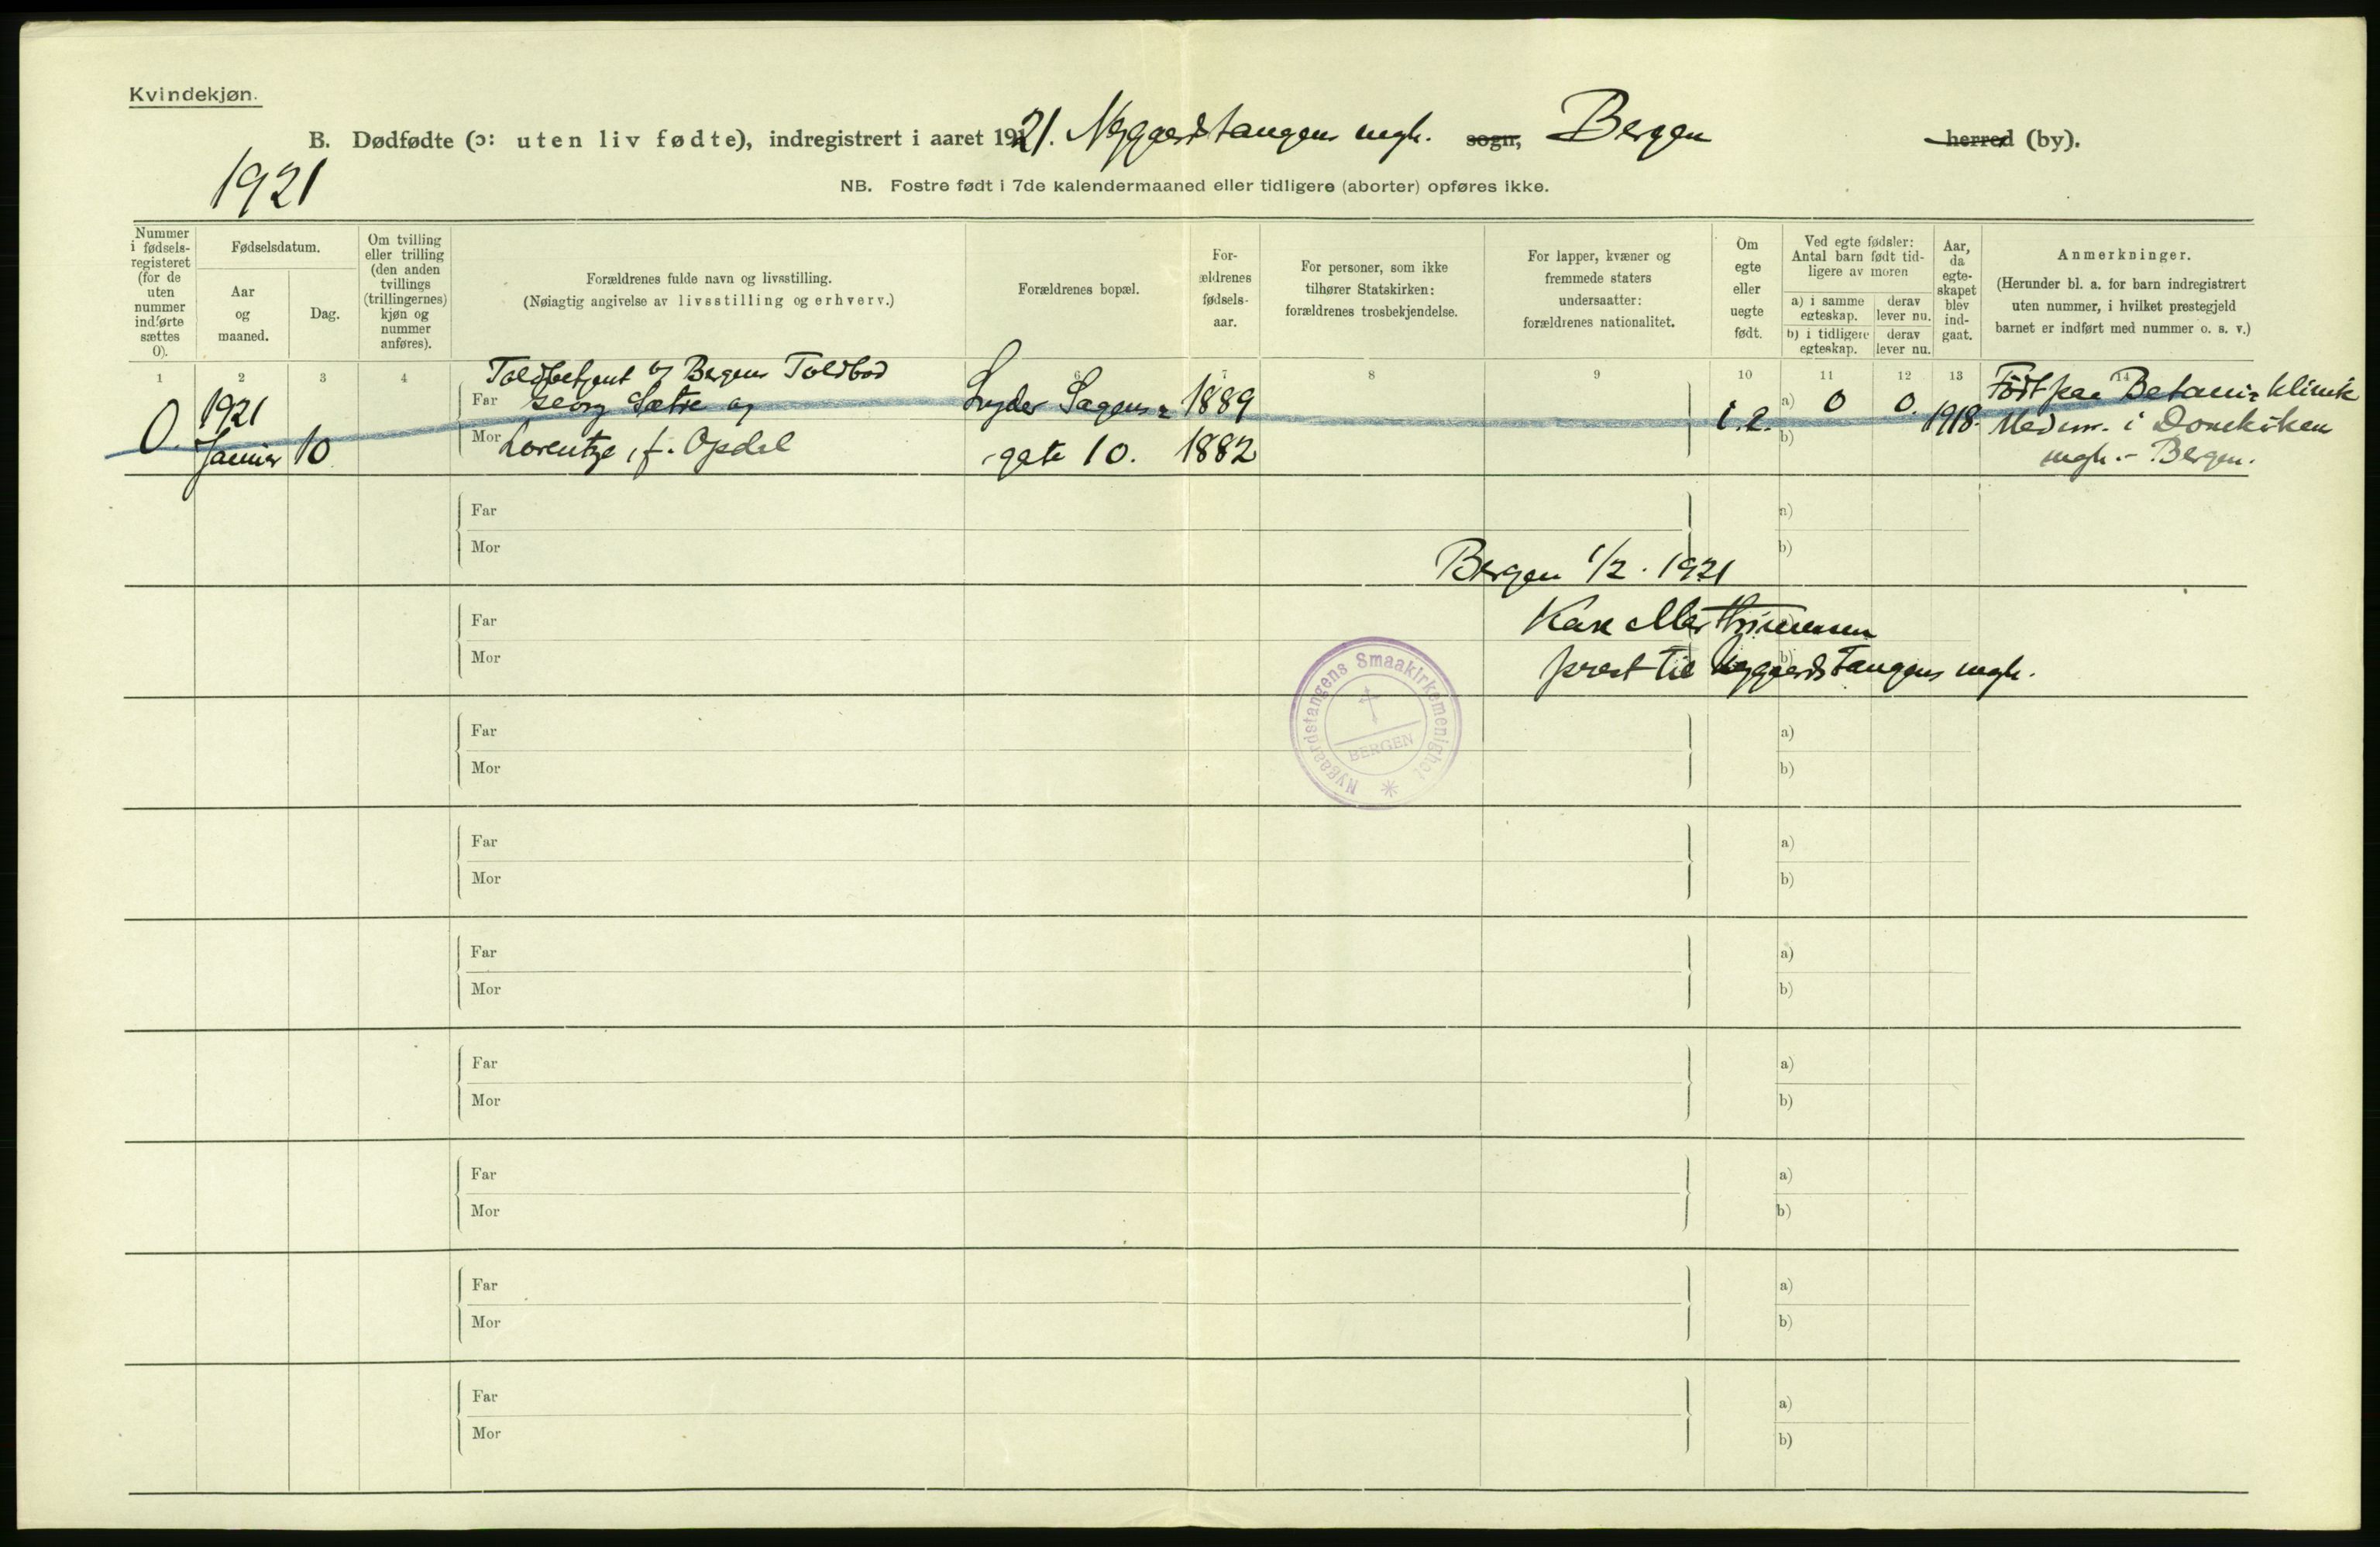 Kvindekjøn.
B. Dødfødte (ɔ: uten liv fødte), indregistrert i aaret 1921. Nygaardstangens mgh. sogn, Bergen herred (by).
1921
NB. Fostre født i 7de kalendermaaned eller tidligere (aborter) opføres ikke.
Nummer i fødsels-registeret (for de uten nummer indførte sættes 0).
Fødselsdatum.
Aar og maaned.
Dag.
Om tvilling eller trilling (den anden tvillings (trillingernes) kjøn og nummer anføres).
Forældrenes fulde navn og livsstilling.
(Nøiagtig angivelse av livsstilling og erhverv.)
Forældrenes bopæl.
For-ældrenes fødsels-aar.
For personer, som ikke tilhører Statskirken: forældrenes trosbekjendelse.
For lapper, kvæner og fremmede staters undersaatter: forældrenes nationalitet.
Om egte eller uegte født.
Ved egte fødsler: Antal barn født tid-ligere av moren
a) i samme egteskap.
derav lever nu.
b) i tidligere egteskap.
derav lever nu.
Aar, da egte-skapet blev ind-gaat.
Anmerkninger.
(Herunder bl. a. for barn indregistrert uten nummer, i hvilket prestegjeld barnet er indført med nummer o. s. v.)
1 2 3 4 6 7 8 9 10 11 12 13 14
Toldbetjent v/ Bergens Toldbod
0. 1921 Januar 10
Far Georg Sætre og
Mor Lorentze, f. Opdal
Lyder Sagens-
gate 10.
1889
1882
a) 0 0.
b)
1918.
Født paa Betania klinik
Med nr. i Domkirken
mgh. - Bergen.
Far a)
Mor b)
Bergen 1/2. 1921
Far
Mor b)
prest til Nygaardstangens mgh.
Nygaardstangens Smaakirkemenighet
BERGEN
Far a)
Mor b)
Far a)
Mor b)
Far a)
Mor b)
Far a)
Mor b)
Far a)
Mor b)
Far a)
Mor b)
Far a)
Mor b)